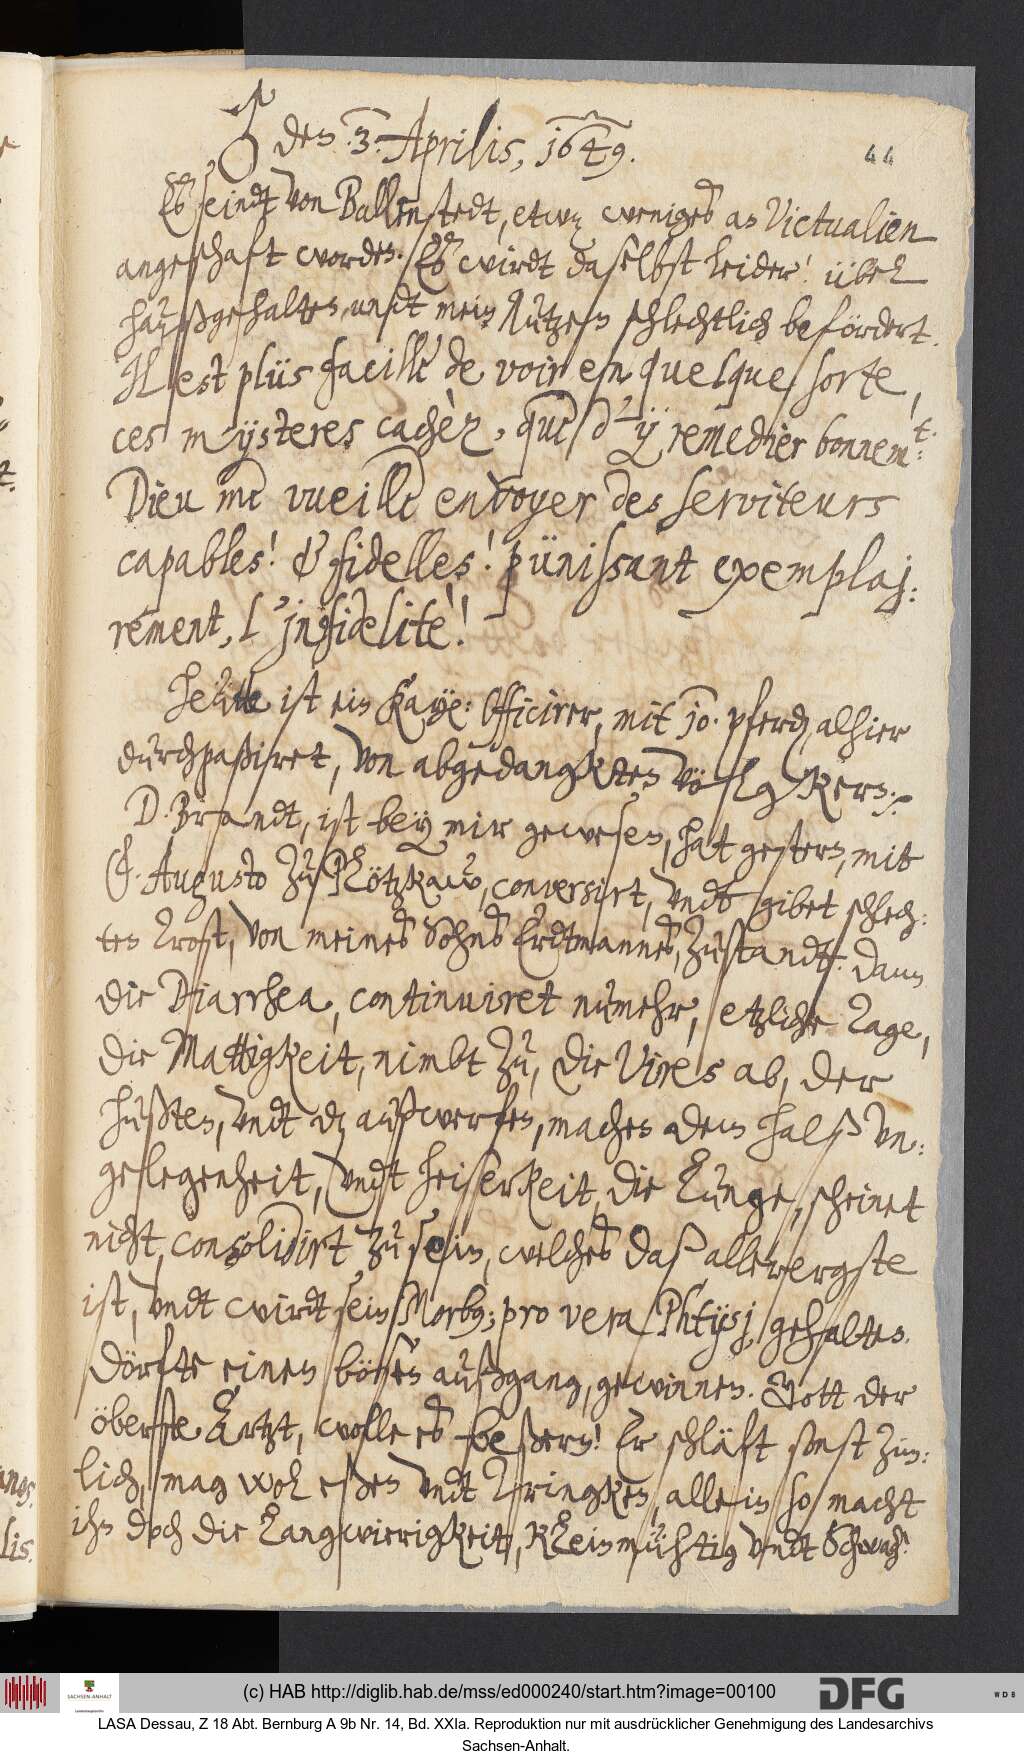 ♂ den .3. Aprilis, 1649.
44
Es seindt von Ballenstedt, etwz weniges an Victualien
angeschaft worden. Es wirdt daselbst leider! übel
haußgehalten, undt mein Nutzen schlechtlich befördert.
Il est plüs facille de voir en quelque sorte,
ces mÿsteres cachèz, que d'ÿ remedièr bonnem.t:
Dieu me vueille envoyer des serviteurs
capables! & fidelles! pünissant exemplaj:
rement, l'jnfidelitè!
Heütte ist ein Kaÿ: Officirer, mit 10. pferden, alhier
durchpaßiret, von abgedangkten völgkern.
D. Brandt, ist beÿ mir gewesen, hat gestern, mit
F. Augusto zu Plötzkaw, conversirt, undt gibet schlech:
ten Trost, von meines Sohns Erdtmannes, zustandt. dann
die Diarrhea, continuiret numehr, etzliche Tage,
die Mattigkeit, nimbt zu, die Vires ab, der
husten, undt dz außwerfen, machen dem halß un:
gelegenheit, undt heiserkeit, die Lunge, scheinet
nicht, consolidirt zu sein, welches daß allerergste
ist, undt wirdt sein Morbus; pro vera Phtÿsj, gehalten.
Dörfte einen bösen außgang, gewinnen. Gott der
öberste Artzt, wolle es beßern! Er schläft sonst zim:
lich, mag wol eßen undt Tringken, allein so macht
ihn doch die Langwierigkeit, Kleinmühtig undt Schwach.
(c) HAB http://diglib.hab.de/mss/ed000240/start.htm?image=00100
SACHSEN-ANHALT
DFG
WDB
LASA Dessau, Z 18 Abt. Bernburg A 9b Nr. 14, Bd. XXIa. Reproduktion nur mit ausdrücklicher Genehmigung des Landesarchivs
Sachsen-Anhalt.